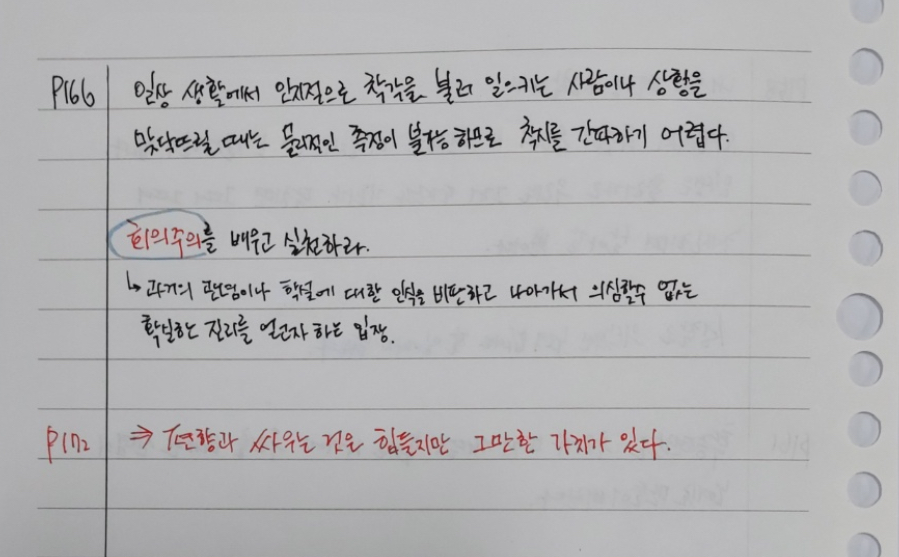 P166 일상 생활에서 인지적으로 착각을 불러 일으키는 사람이나 상황을
맞닥뜨릴 때는 물리적인 측정이 불가능하므로 착시를 간파하기 어렵다.
회의주의를 배우고 실천하라.
↳ 과거의 관념이나 학설에 대한 인식을 비판하고 나아가서 의심할수 없는
확실한 진리를 얻고자 하는 입장.
P172 ⇒ 편향과 싸우는 것은 힘들지만 그만한 가치가 있다.